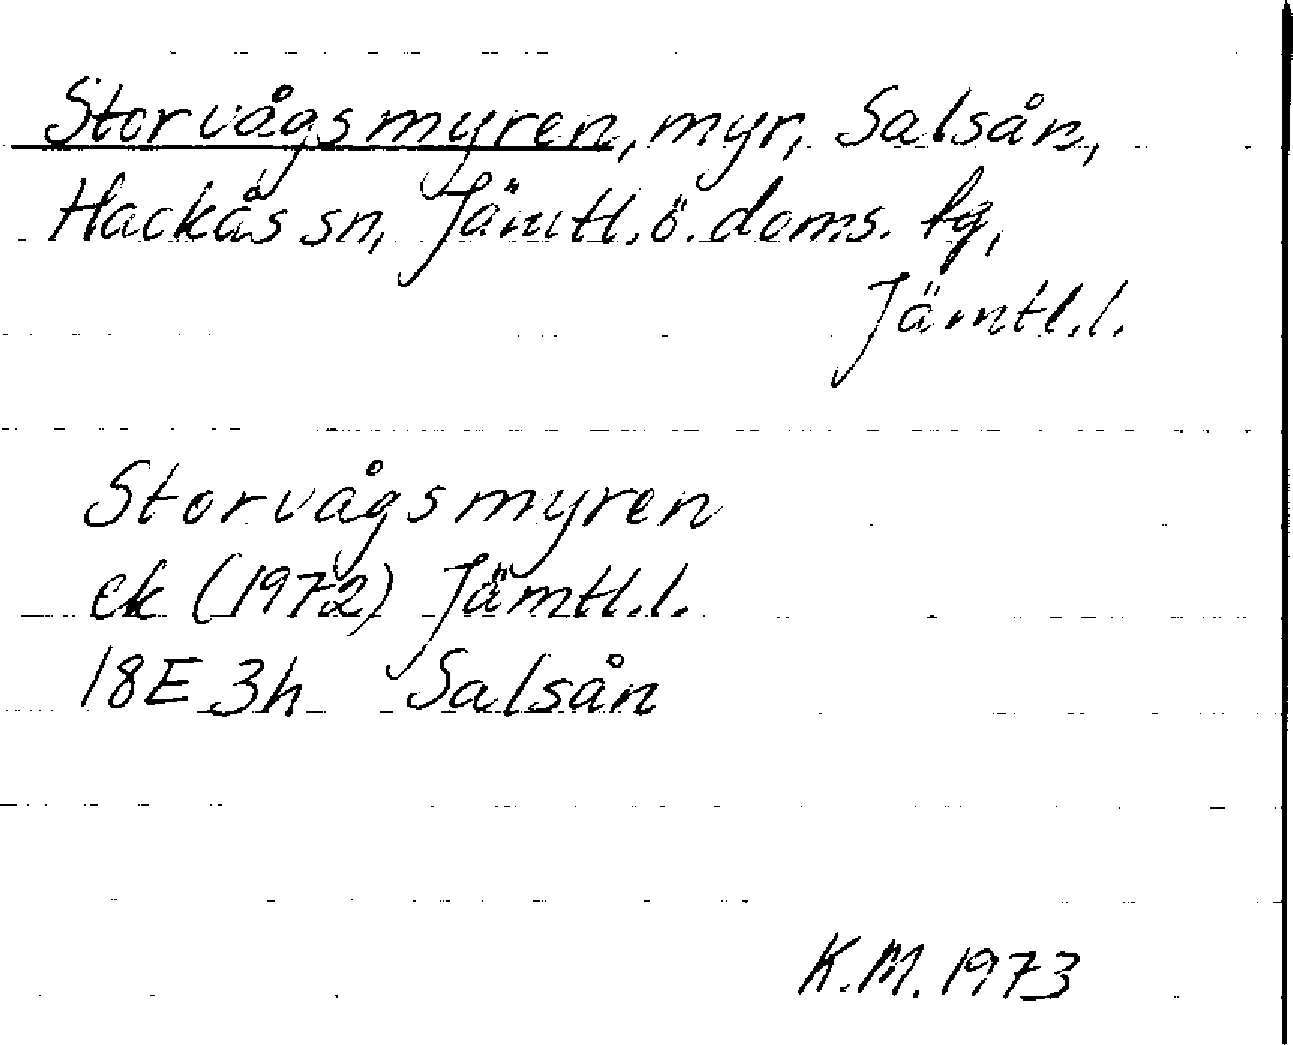 Storvågsmyren, myr, Salsån,
Hackås sn, Jämtl. ö. doms. fg,
Jämtl. l.
Storvågsmyren
ek (1972) Jämtl. l.
18E 3h Salsån
K.M. 1973